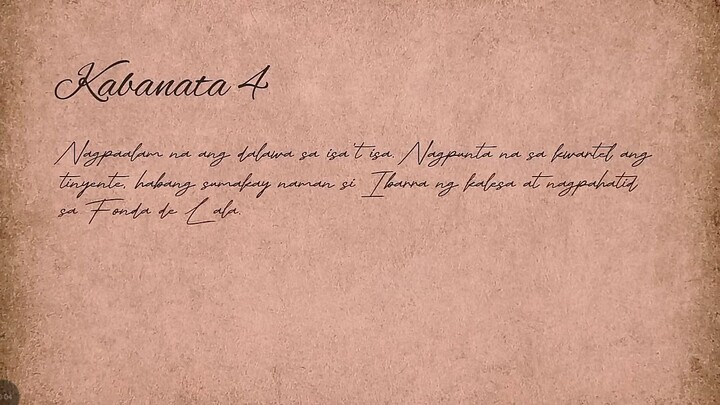 Kabanata 4
Nagpaalam na ang dalawa sa isa't isa. Nagpunta na sa kwartel ang
tinyente, habang sumakay naman si Ibarra ng kalesa at nagpahatid
sa Fonda de Lala.